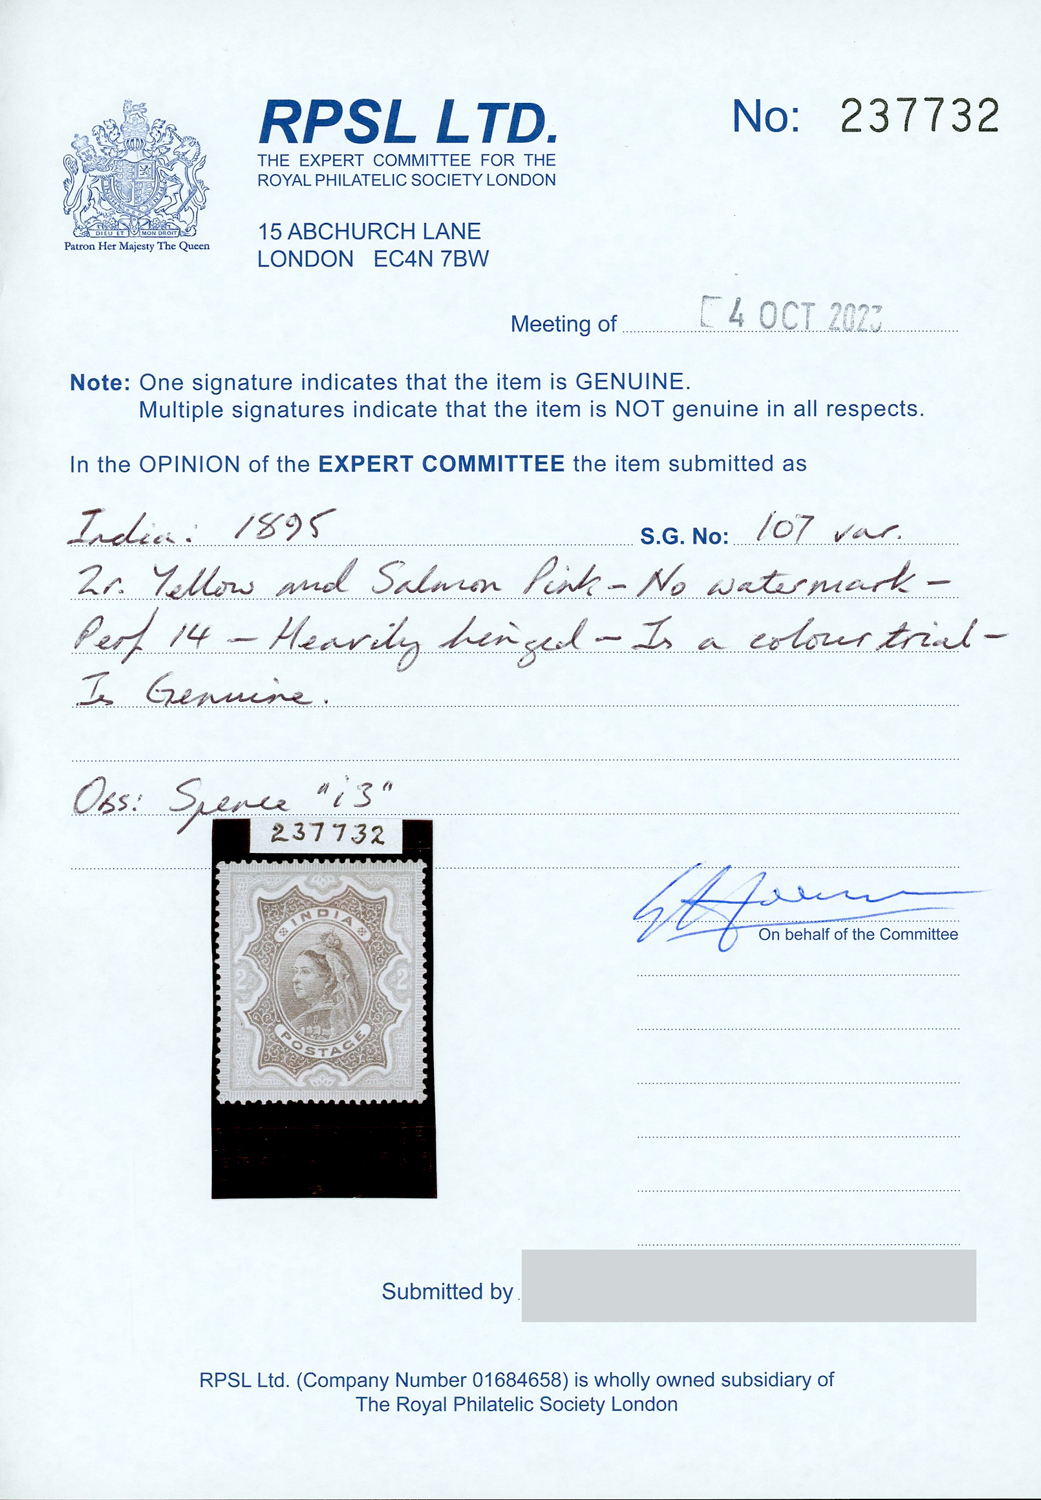 RPSL LTD.
No: 237732
THE EXPERT COMMITTEE FOR THE
ROYAL PHILATELIC SOCIETY LONDON
DIEU ET MON DROIT
Patron Her Majesty The Queen
15 ABCHURCH LANE
LONDON EC4N 7BW
Meeting of 4 OCT 2023
Note: One signature indicates that the item is GENUINE.
Multiple signatures indicate that the item is NOT genuine in all respects.
In the OPINION of the EXPERT COMMITTEE the item submitted as
India: 1895 S.G. No: 107 var.
2r. Yellow and Salmon Pink – No watermark –
Perf 14 – Heavily hinged – Is a colour trial –
Is Genuine.
Obs: Spence "i3"
237732
INDIA
2 2
POSTAGE
On behalf of the Committee
Submitted by
RPSL Ltd. (Company Number 01684658) is wholly owned subsidiary of
The Royal Philatelic Society London